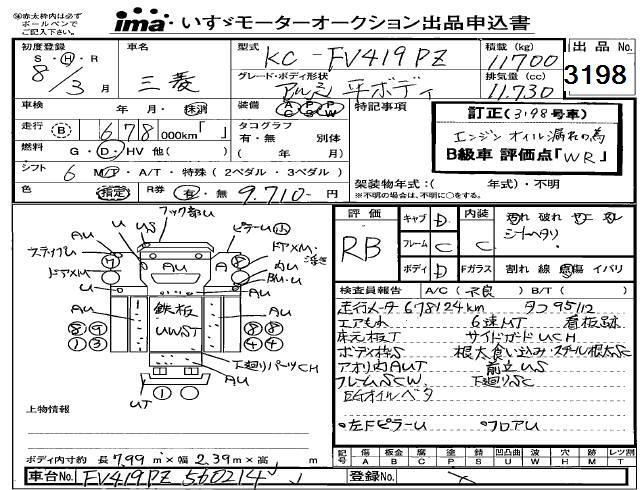 ※赤太枠内は必ずボールペンでご記入下さい。
ima・いすゞモーターオークション出品申込書
初度登録 S・H・R 8/3月
車名 三菱
型式 KC-FV419PZ
積載 (kg) 11700
出品No. 3198
グレード・ボディ形状 アルミ平ボディ
排気量 (cc) 11,730
車検 年 月・抹消
装備 AC PS PW
特記事項
走行 B 678 000km「 」
タコグラフ 有・無 別体 ( 年 月)
訂正(3198号車)
エンジンオイル漏れの為
B級車 評価点「WR」
燃料 G・D・HV 他( )
シフト 6 M/F・A/T・特殊 (2ペダル・3ペダル)
架装物年式:( 年式)・不明
※不明の場合は、不明に○をする。
色 指定 R券 有・無 9.710-円
フック部U
U US
ピラーU小
ステップU
ドアXM・浮き
ドアXM
AU
A
内U
BM・U
U
AU
鉄板
UWST
AU
下廻りパーツCH
AU
UT
上物情報
評価 RB
キャブ D
フレーム C
ボディ D
内装 C
汚れ 破れ
シートヘタリ
Fガラス 割れ 線 点傷 イバリ
検査員報告 A/C (不良) B/T ( )
走行メータ 678124km タコ95/12
エアもれ 6速MT 看板跡
床元板T サイドガードUCH
ボディ枠S 根太食い込み・スチール根太SC
アオリ内AUT 前立US
フレームSCW 下廻りSC
EGオイルベタ
・左FピラーU ・フロアU
ボディ内寸約 長 7.99 m×幅 2.39 m×高 m
記号 傷A 板金B 腐C 塗P 錆S 凹凸曲U 波W 穴H 汚M レツ割T
車台No. FV419PZ 560214
登録No.